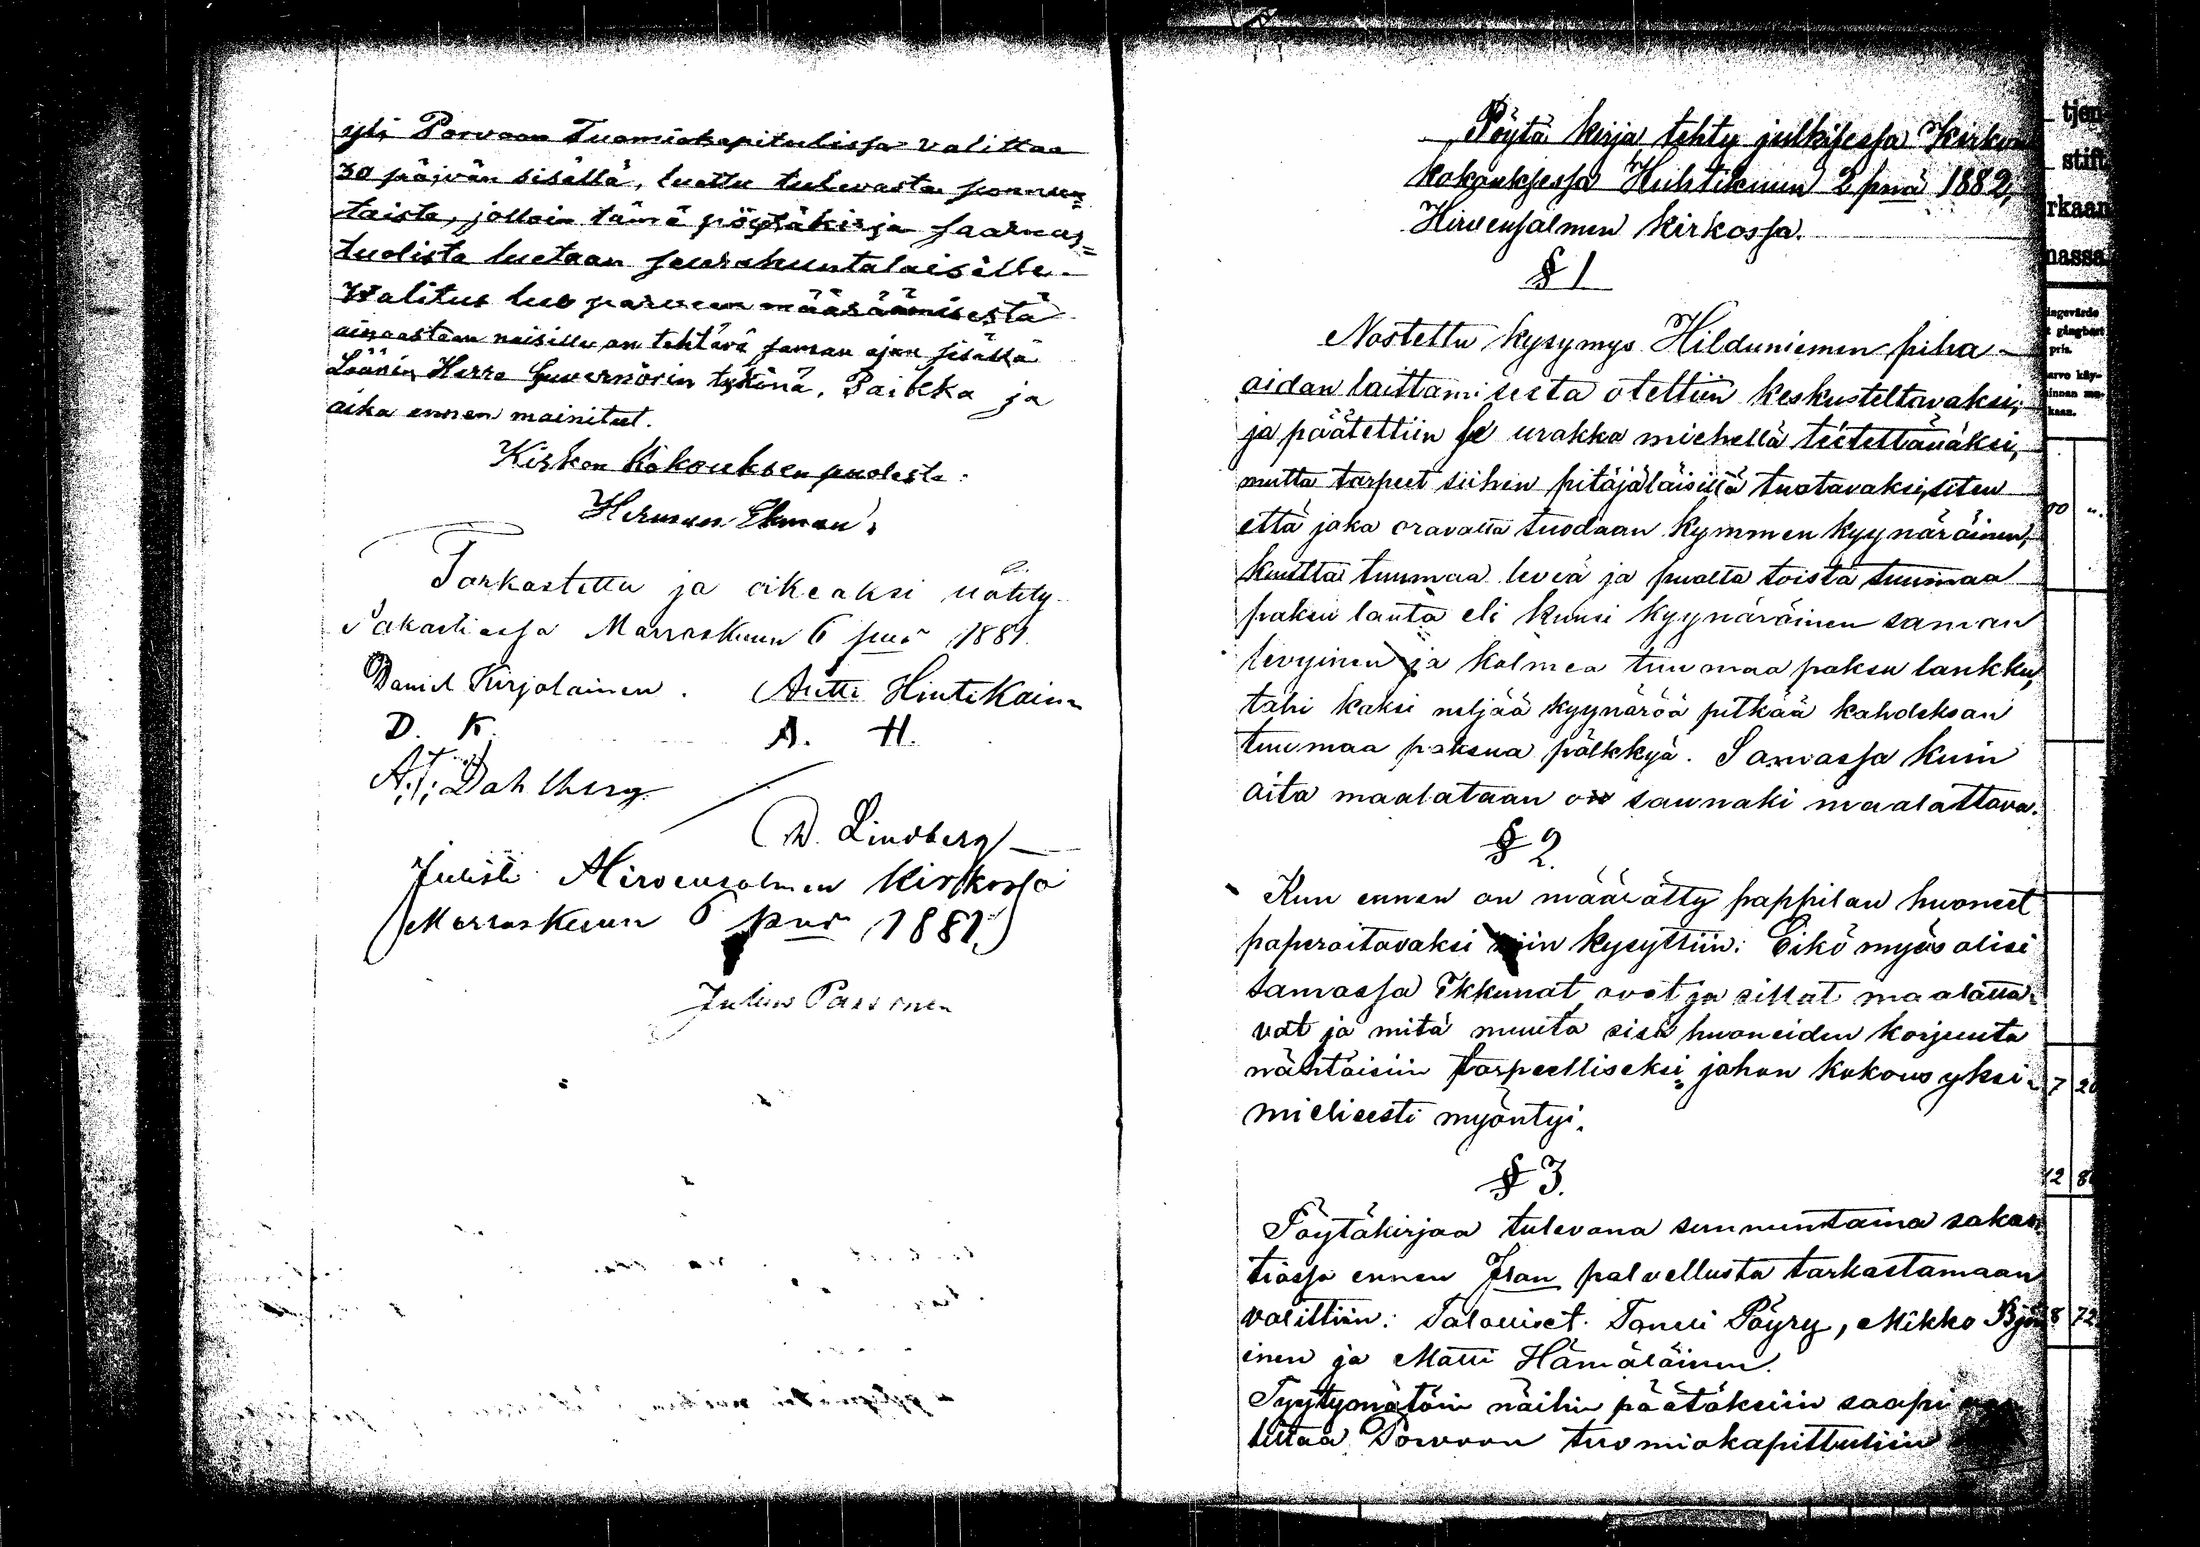 yli Porvoon Tuomiokapitulissa valittaa
30 päivän sisällä, luettu tulevasta sunnun=
taista, jolloin tämä pöytäkirja saarnas=
tuolista luetaan seurakuntalaisille.
Walitus luo parveen määräämisestä
ainoastaan naisille on tehtävä saman ajan sisällä
Läänin Herra Guvernörin tykönä. Paikka ja
aika ennen mainitut.
Kirkon Kokouksen puolesta:
Herman Ekman.
Tarkastettu ja oikeaksi nähty
Sakastiassa Marraskuun 6 pnä 1881.
Daniel Kurjolainen. Antti Hintikainen
D. K. A. H.
A. J. Dahlberg
D. Lindberg
Julisti Hirvensalmen Kirkossa
Marraskuun 6 pnä 1881.
Julius Passinen
Pöytä kirja tehty julkisessa Kirkon
kokouksessa Huhtikuun 2 pnä 1882,
Hirvensalmen kirkossa.
§ 1
Nostettu kysymys Hilduniemen piha-
aidan laittamisesta otettiin keskusteltavaksi,
ja päätettiin se urakka miehellä teetettäväksi,
mutta tarpeet siihen pitäjäläisillä tuotavaksi, siten
että joka oravalta tuodaan kymmen kyynäräinen,
kuutta tuumaa leviä ja puolta toista tuumaa
paksu lauta eli kuusi kyynäräinen saman
levyinen ja kolmea tuumaa paksu lankku,
tahi kaksi neljää kyynärää pitkää kahdeksan
tuumaa paksua pölkkyä. Samassa kuin
aita maalataan on saunaki maalattava.
§ 2.
Kun ennen on määrätty pappilan huoneet
paperoitavaksi niin kysyttiin: Eikö myös olisi
samassa Ikkunat, ovet ja sillat maalatta-
vat ja mitä muuta sisä huoneiden korjuuta
nähtäisiin tarpeelliseksi, johon kokous yksi-
mielisesti myöntyi.
§ 3.
Pöytäkirjaa tulevana sunnuntaina sakas-
tiassa ennen Jsan palvellusta tarkastamaan
valittiin: Talouiset. Taneli Pöyry, Mikko Byö
inen ja Matti Hämäläinen.
Tyytymätöin näihin päätöksiin saapi va
littaa Porvoon tuomiokapittuliin
tjen
stift
rkaan
nassa.
ingevärde
t gångbart
pris.
arvo käy-
innan mu-
kaan.
7 20
12 8
8 72